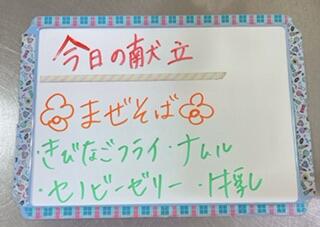 今日の献立
まぜそば
・きびなごフライ・ナムル
・セノビーゼリー・牛乳